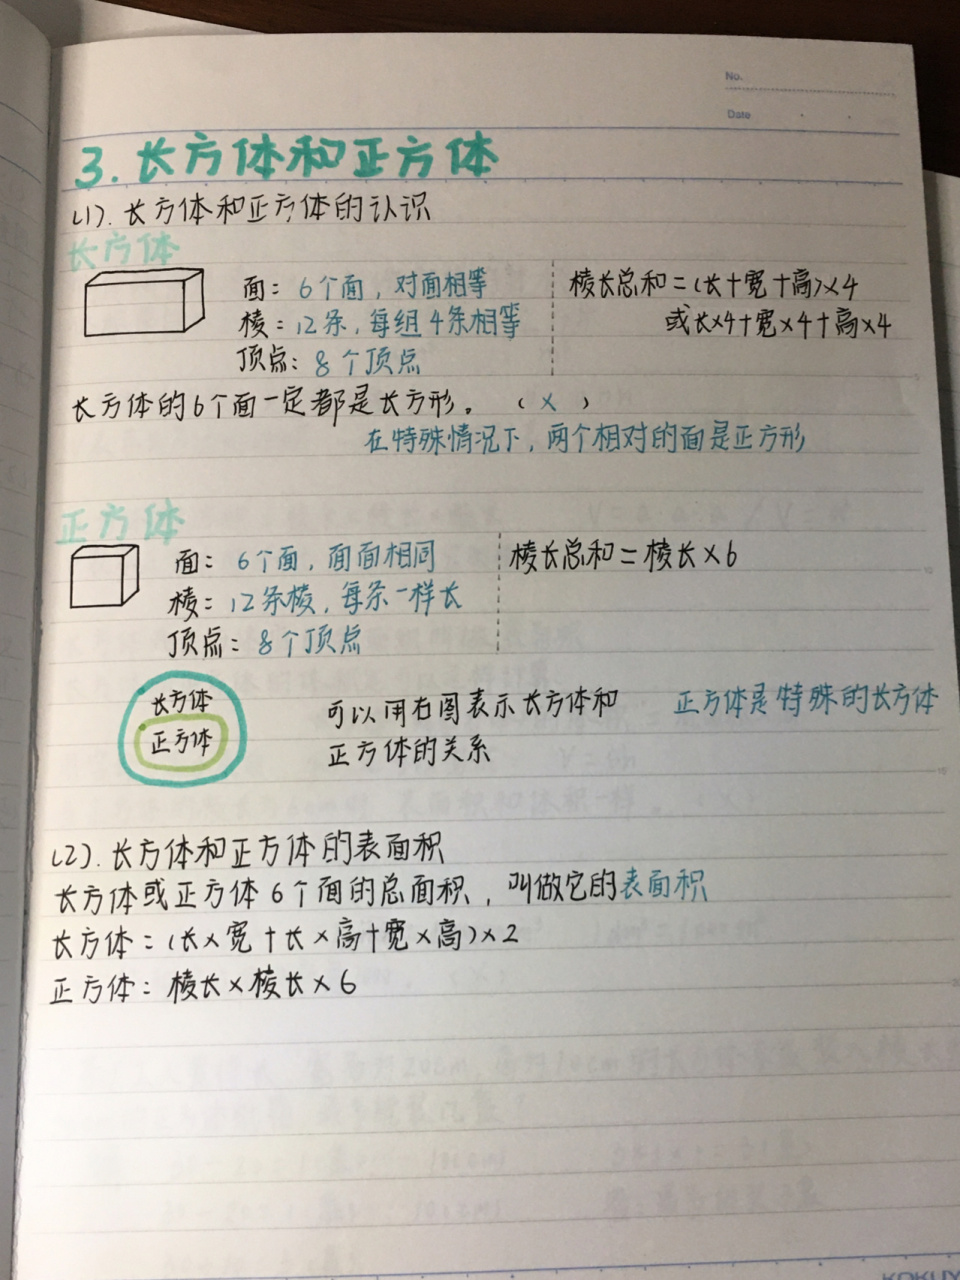 No.
Date
3.长方体和正方体
(1).长方体和正方体的认识
长方体
面：6个面，对面相等
棱：12条，每组4条相等
顶点：8个顶点
棱长总和＝(长＋宽＋高)×4
或长×4＋宽×4＋高×4
长方体的6个面一定都是长方形。（×）
在特殊情况下，两个相对的面是正方形
正方体
面：6个面，面面相同
棱：12条棱，每条一样长
顶点：8个顶点
棱长总和＝棱长×6
长方体
正方体
可以用右图表示长方体和
正方体的关系
正方体是特殊的长方体
(2).长方体和正方体的表面积
长方体或正方体6个面的总面积，叫做它的表面积
长方体＝(长×宽＋长×高＋宽×高)×2
正方体：棱长×棱长×6